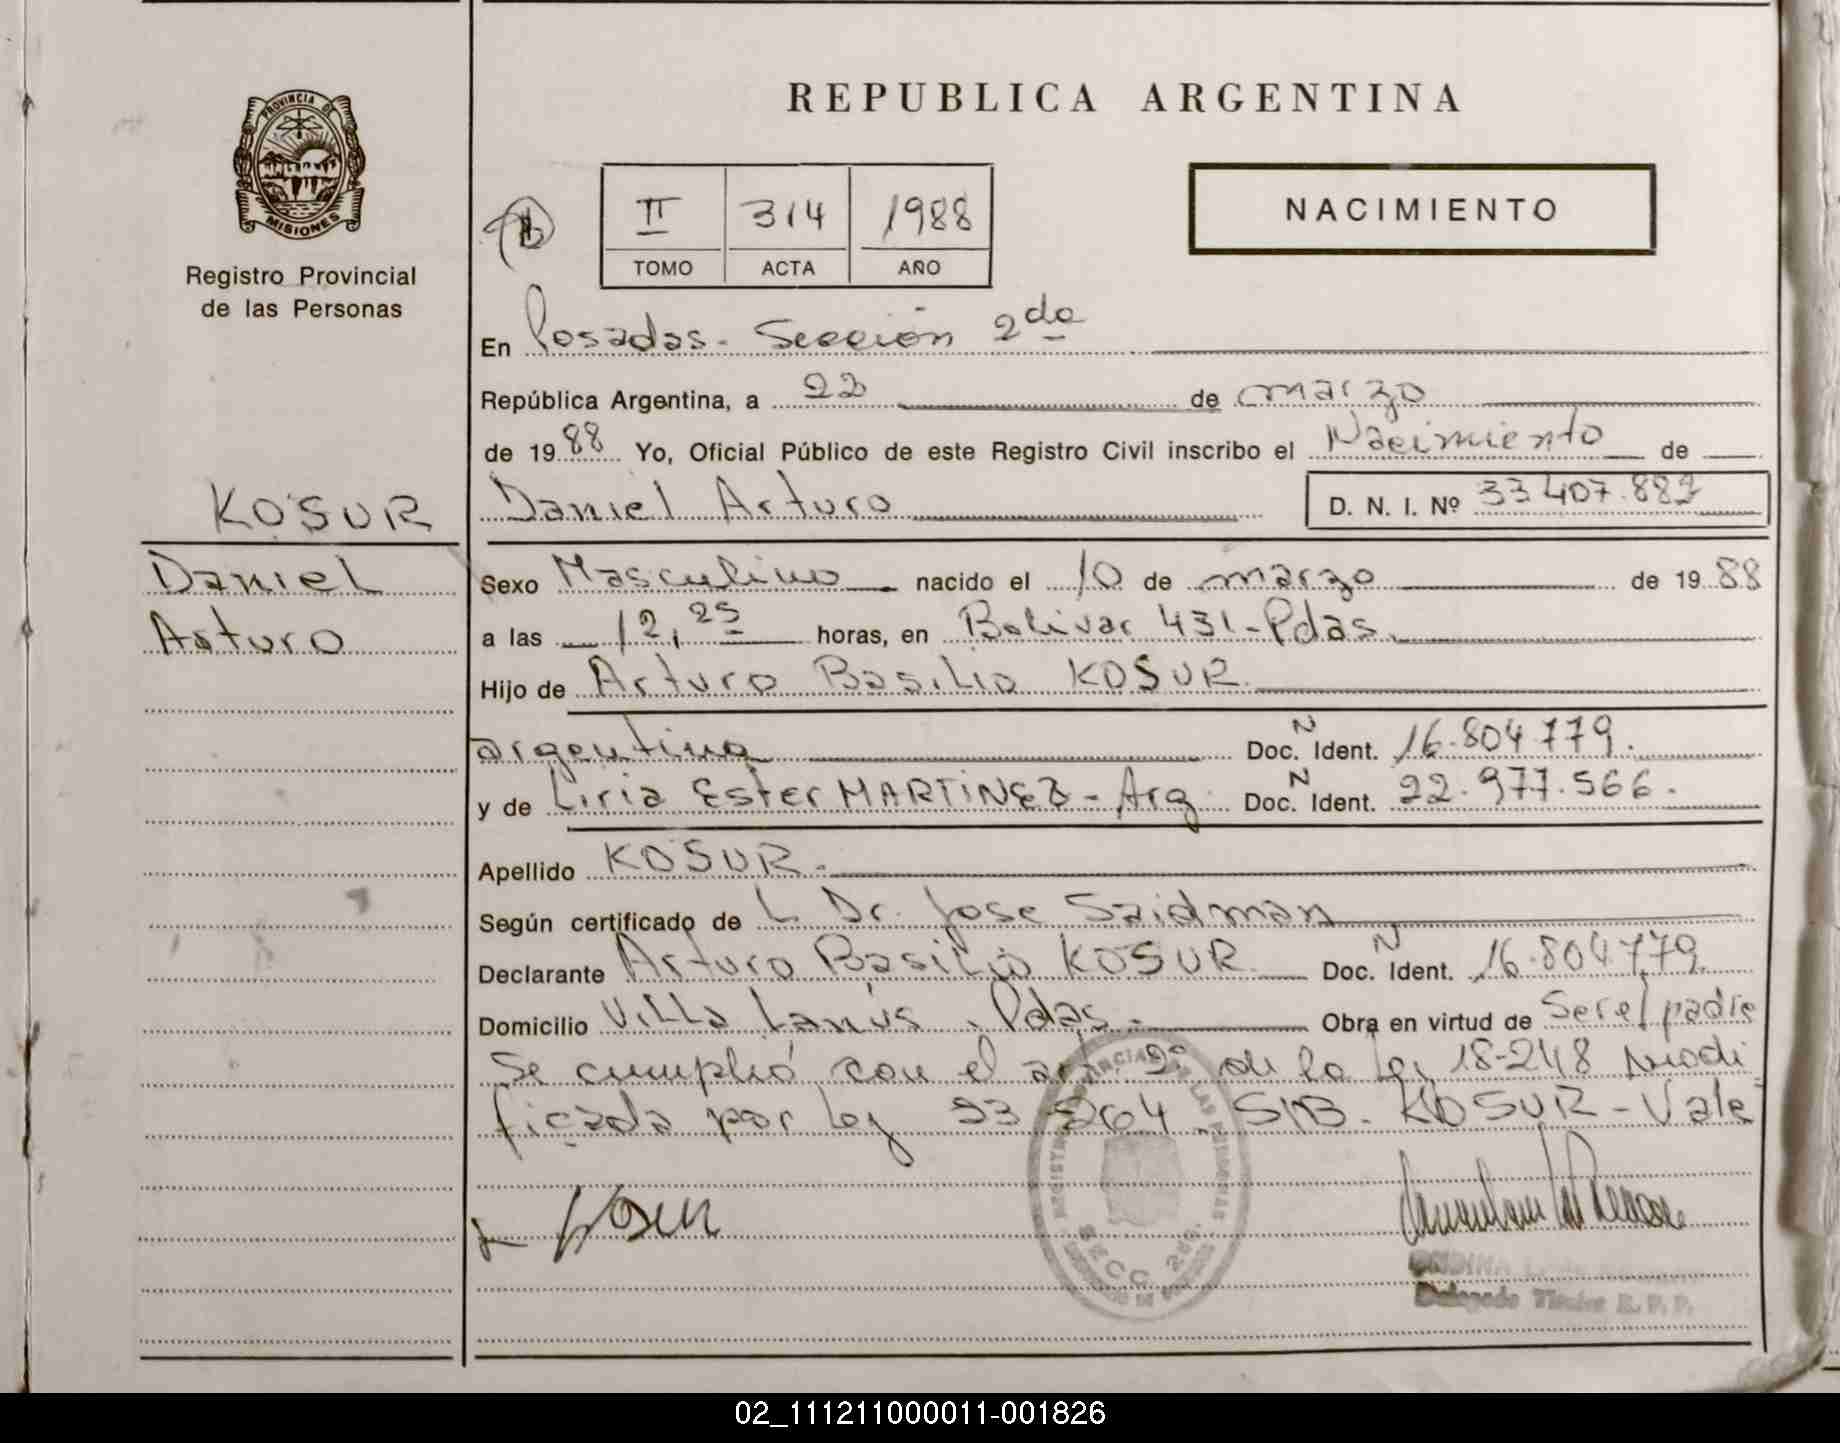 PROVINCIA DE
MISIONES
Registro Provincial
de las Personas
REPUBLICA ARGENTINA
II 314 1988
TOMO ACTA AÑO
NACIMIENTO
En Posadas - Sección 2da
República Argentina, a 22 de marzo
de 1988 Yo, Oficial Público de este Registro Civil inscribo el Nacimiento de
KOSUR
Daniel Arturo
D. N. I. Nº 33.407.882
Daniel
Arturo
Sexo Masculino nacido el 10 de marzo de 1988
a las 12,25 horas, en Bolivar 431 - Pdas.
Hijo de Arturo Basilio KOSUR.
argentina Doc. N Ident. 16.804.779.
y de Liria Ester MARTINEZ - Arg. Doc. N Ident. 22.977.566.
Apellido KOSUR.
Según certificado de L. Dr. Jose Saidman
Declarante Arturo Basilio KOSUR Doc. N Ident. 16.804.779
Domicilio Villa Lanús, Pdas. Obra en virtud de Ser el padre
Se cumplió con el art. 2º de la Ley 18-248 modi
ficada por Ley 23-264. S/B. KOSUR - Vale
SECC. 2da.
ONDINA
Delegado Técnico R. P. P.
02_111211000011-001826